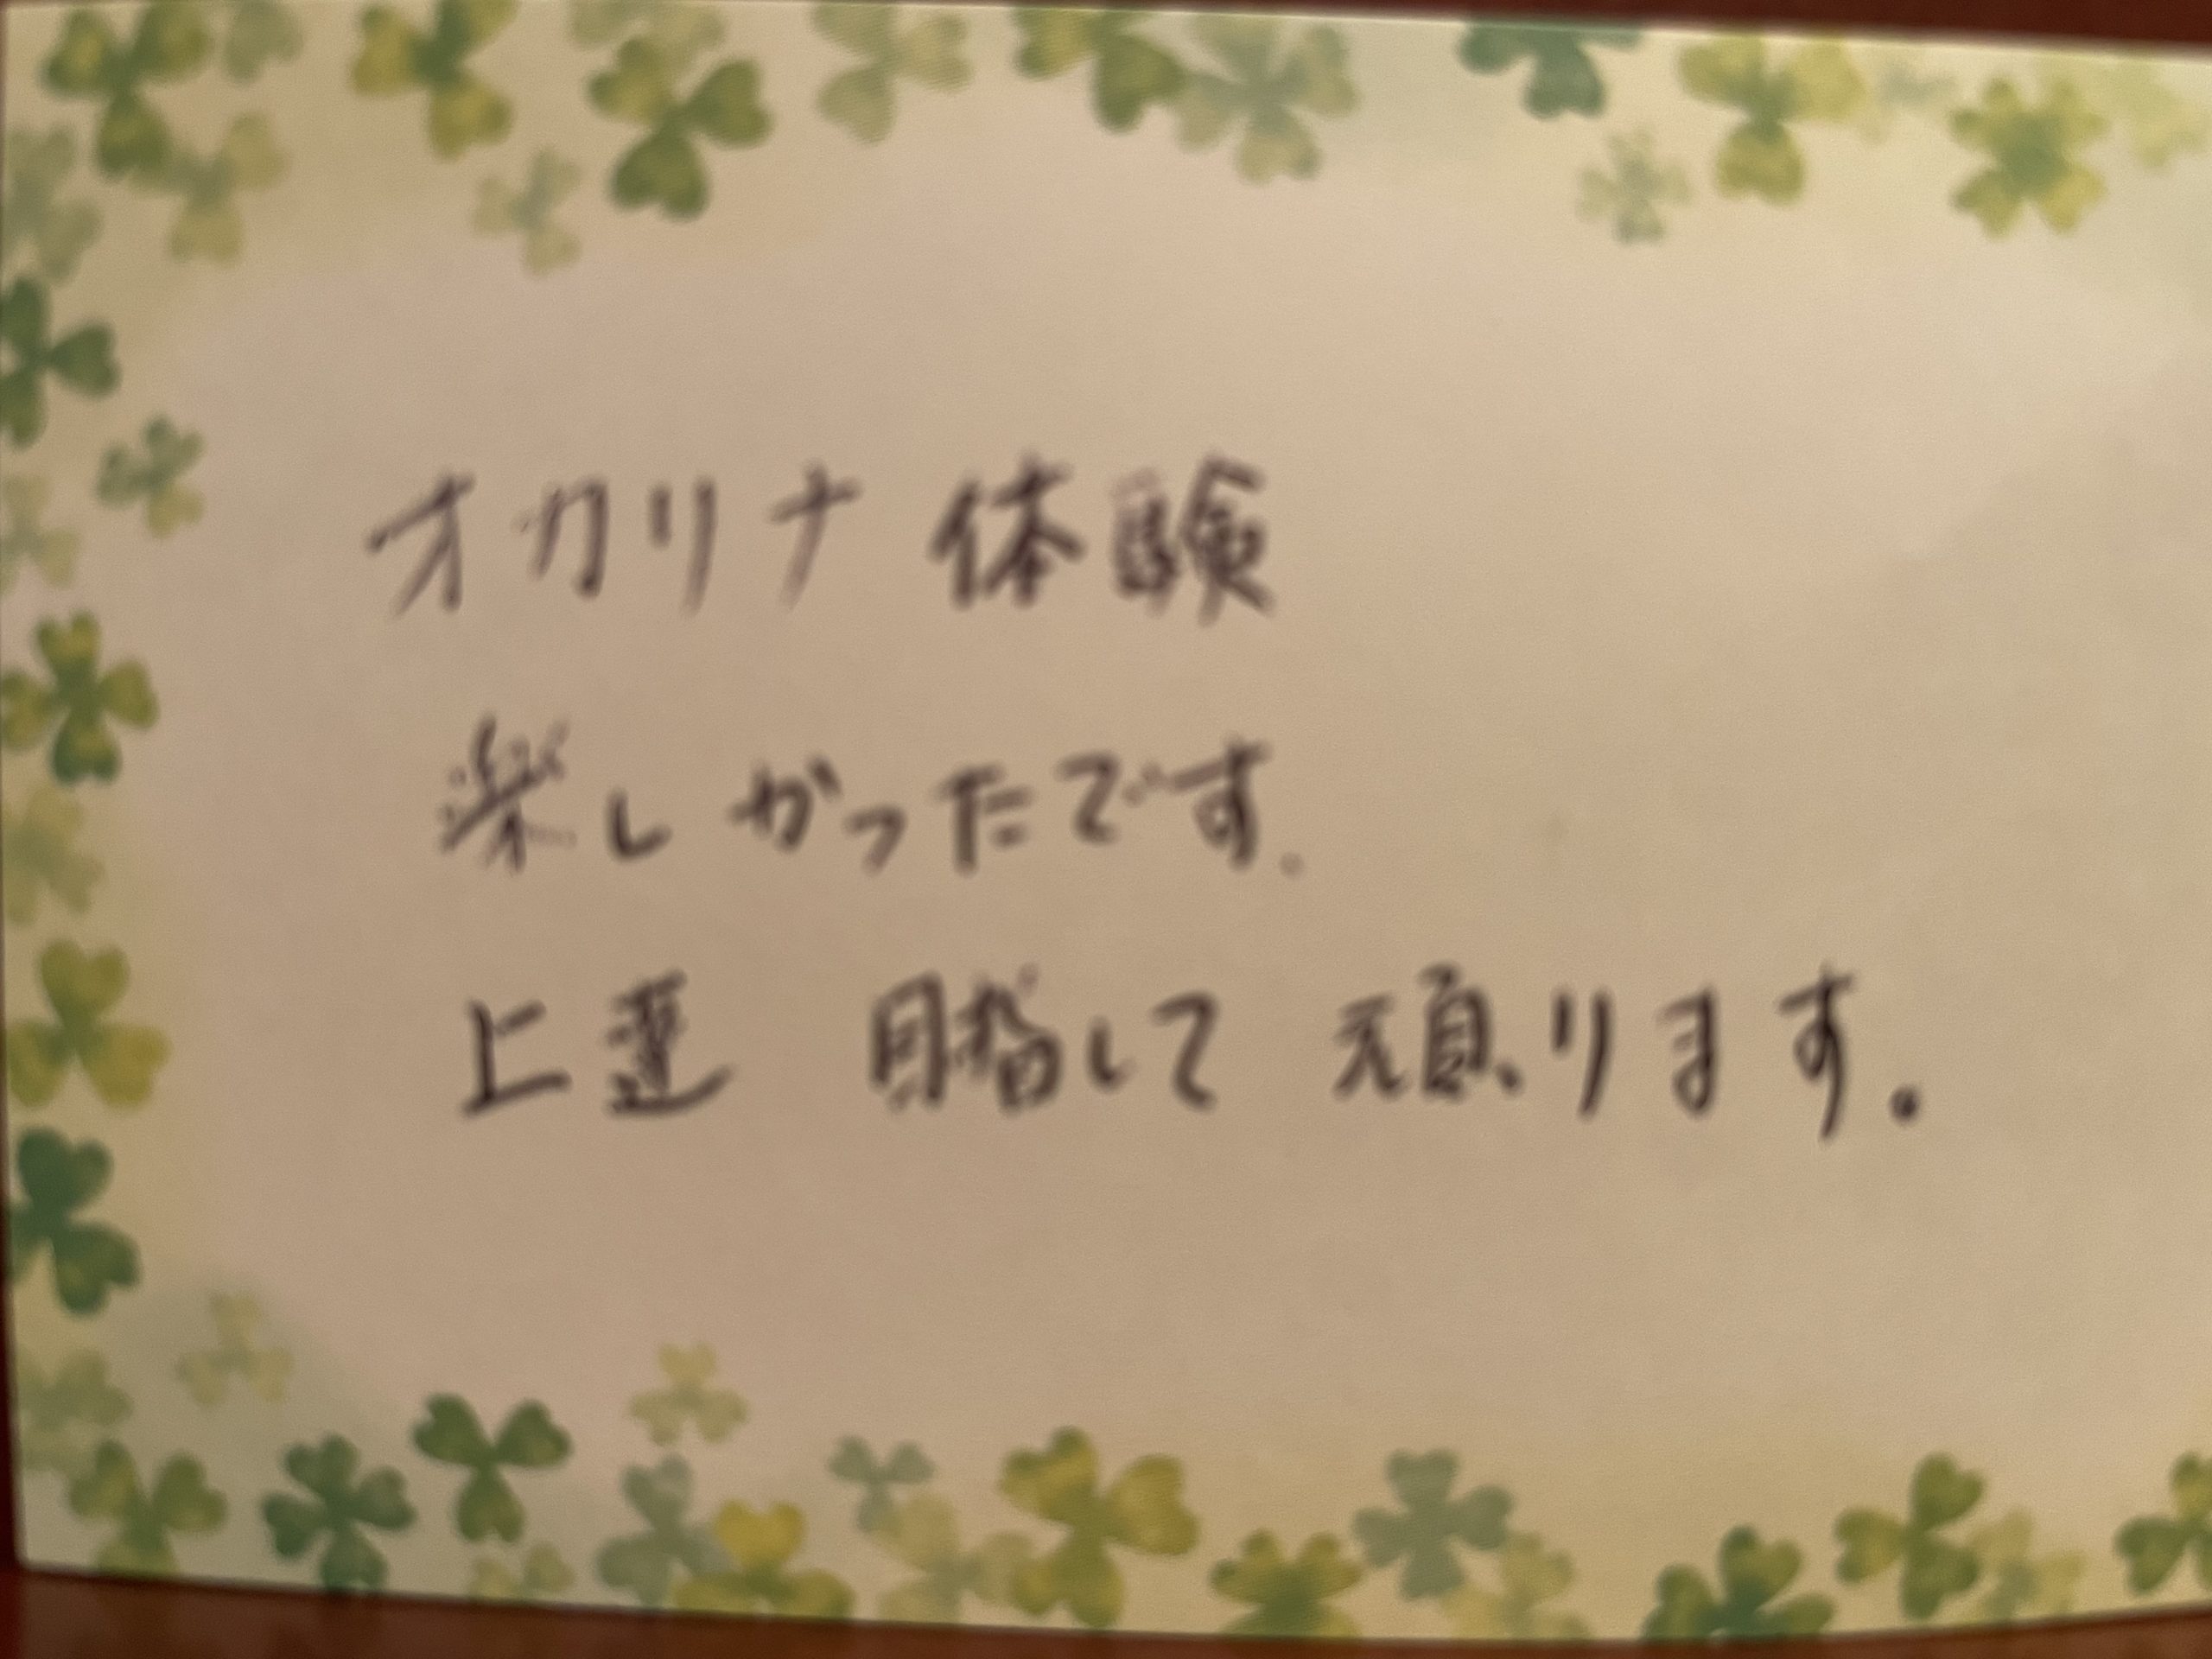 オカリナ体験
楽しかったです。
上達 目指して 頑ります。